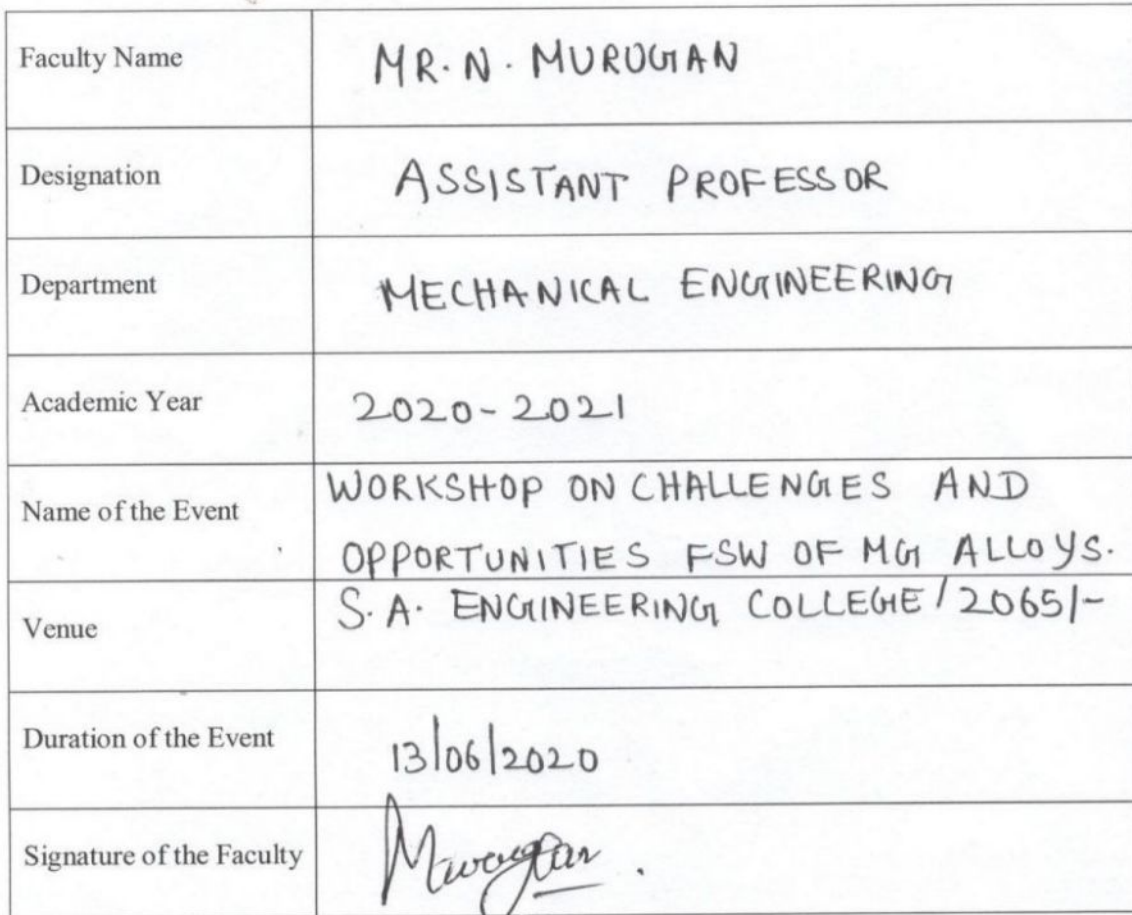 Faculty Name MR. N. MURUGAN
Designation ASSISTANT PROFESSOR
Department MECHANICAL ENGINEERING
Academic Year 2020-2021
Name of the Event WORKSHOP ON CHALLENGES AND
OPPORTUNITIES FSW OF MG ALLOYS.
Venue S.A. ENGINEERING COLLEGE / 2065/-
Duration of the Event 13/06/2020
Signature of the Faculty Murugan.